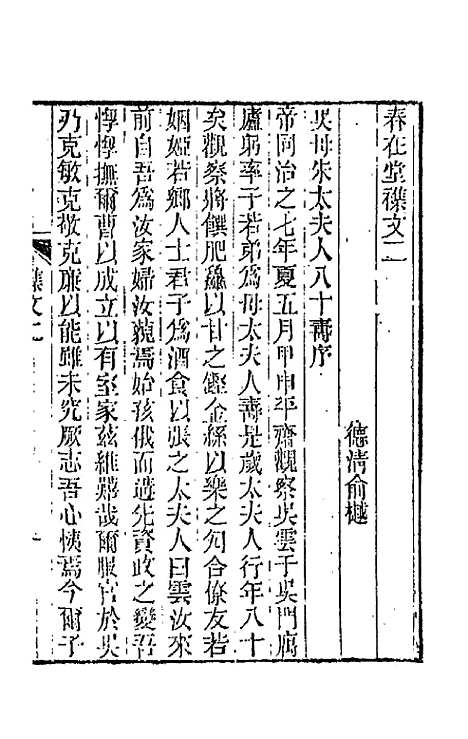 春在堂襍文二
德淸俞樾
吳母朱太夫人八十壽序
帝同治之七年夏五月甲申平齋觀察吳雲于吳門寓
廬躬率子若弟爲母太夫人壽是歲太夫人行年八十
矣觀察將饌肥鱻以甘之鏗金絲以樂之匃合僚友若
姻婭若鄉人士君子爲酒食以張之太夫人曰雲汝來
前自吾爲汝家婦汝藐焉始孩俄而遘先資政之變吾
惸惸撫爾曹以成立以有室家茲維艱哉爾服官於吳
乃克敏克敬克廉以能雖未究厥志吾心恔焉今爾子
襍文二